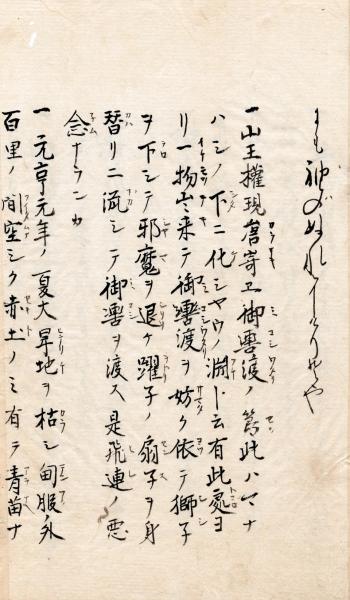 神のぬれ
一山王權現 ヱ御轝渡ノ節此ハマナ
ハシノ下ニ化シヤウノ淵ト云有此處ヨ
リ一物出来テ御轝渡ヲ妨ク依テ獅子
ヲ下シテ邪魔ヲ退ケ躍子ノ扇子ヲ身
替リニ流シテ御轝ヲ渡ス是飛連ノ悪
念ナランカ
一元亨元年ノ夏大旱地ヲ枯シ甸服ノ外
百里ノ間空シク赤土ノミ有テ青苗ナ